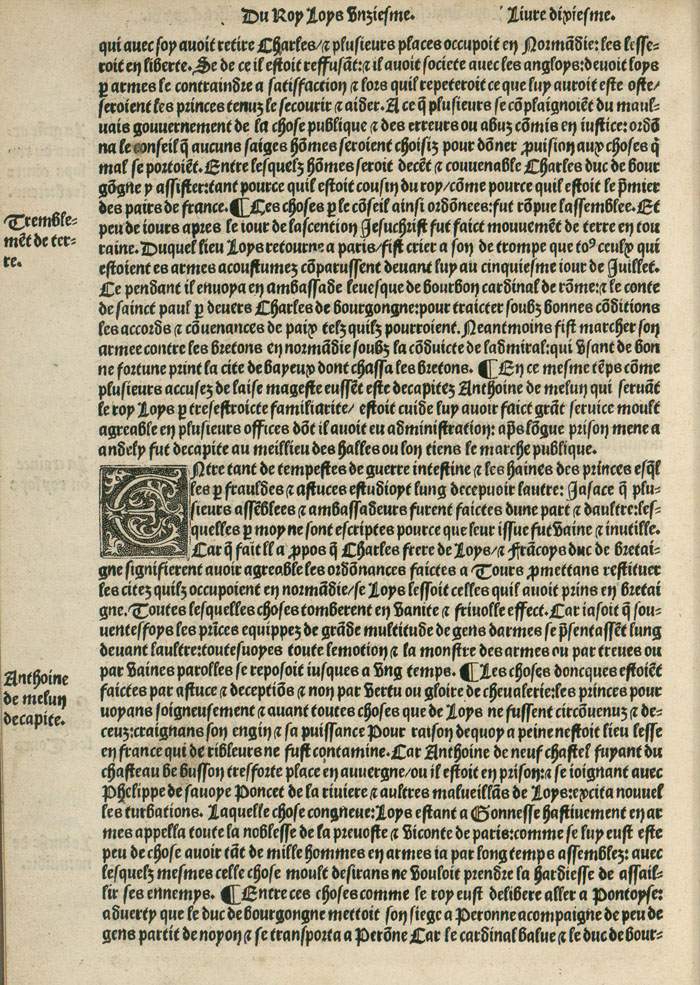 Du Roy Loys Unziesme. Liure dixiesme.
qui auec soy auoit retire Charles/ ⁊ plusieurs places occupoit en Normãdie: les lesse-
roit en liberte. Se de ce il estoit reffusãt: ⁊ il auoit societe auec les angloys: deuoit loys
ꝑ armes le contraindre a satisfaction ⁊ lors quil repeteroit ce que luy auroit este oste/
seroient les princes tenuz le secourir ⁊ aider. A ce q̃ plusieurs se cõplaignoiẽt du maul-
uais gouuernement de la chose publique ⁊ des erreurs ou abuz cõmis en iustice: ordõ
na le conseil q̃ aucuns saiges hõmes seroient choisiz pour dõner ꝓuision aux choses q̃
mal se portoiẽt. Entre lesquelz hõmes seroit decẽt ⁊ couuenable Charles duc de bour
gõgne y assister: tant pource quil estoit cousin du roy/ cõme pource quil estoit le p̃mier
des pairs de france. ¶ Ces choses ꝑ le cõseil ainsi ordõnees: fut rõpue lassemblee. Et
peu de iours apres le iour de lascention Jesuchrist fut faict mouuemẽt de terre en tou
Tremble-
mẽt de ter-
re.
raine. Duquel lieu Loys retourne a paris/ fist crier a son de trompe que to⁹ ceulx qui
estoient es armes acoustumez cõparussent deuant luy au cinquiesme iour de Juillet.
Ce pendant il enuoya en ambassade leuesque de bourbon cardinal de rõme: ⁊ le conte
de sainct paul ꝑ deuers Charles de bourgongne: pour traicter soubz bonnes cõditions
les accords ⁊ cõuenances de paix telz quilz pourroient. Neantmoins fist marcher son
armee contre les bretons en normãdie soubz la cõduicte de ladmiral: qui vsant de bon
ne fortune print la cite de bayeux dont chassa les bretons. ¶ En ce mesme tẽps cõme
plusieurs accusez de laise mageste eussẽt este decapitez Anthoine de melun qui seruãt
le roy Loys ꝑ tresestroicte familiarite/ estoit cuide luy auoir faict grãt seruice moult
agreable en plusieurs offices dõt il auoit eu administration: ap̃s lõgue prison mene a
andely fut decapite au meillieu des halles ou lon tiens le marche publique.
ENtre tant de tempestes de guerre intestine ⁊ les haines des princes esq̃l
les ꝑ frauldes ⁊ astuces estudioyt lung decepuoir lautre: Jasace q̃ plu-
sieurs assẽblees ⁊ ambassadeurs furent faictes dune part ⁊ daultre: les-
quelles ꝑ moy ne sont escriptes pource que leur issue fut vaine ⁊ inutille.
Car q̃ fait il a ꝓpos q̃ Charles frere de Loys/ ⁊ frãcoys duc de bretai-
gne signifierent auoir agreable les ordõnances faictes a Tours ꝓmettans restituer
les citez quilz occupoient en normãdie/ se Loys lessoit celles quil auoit prins en bretai
gne. Toutes lesquelles choses tomberent en vanite ⁊ friuolle effect. Car iasoit q̃ sou-
uentesfoys les prĩces equippez de grãde multitude de gens darmes se p̃sentassẽt lung
deuant laultre: toutesuoyes toute lemotion ⁊ la monstre des armes ou par treues ou
par vaines parolles se reposoit iusques a vng temps. ¶ Les choses doncques estoiẽt
Anthoine
de melun
decapite.
faictes par astuce ⁊ deceptiõs ⁊ non par vertu ou gloire de cheualerie: les princes pour
uoyans soigneusement ⁊ auant toutes choses que de Loys ne fussent circõuenuz ⁊ de-
ceuz: craignans son engin ⁊ sa puissance Pour raison dequoy a peine nestoit lieu lesse
en france qui de ribleurs ne fust contamine. Car Anthoine de neuf chastel fuyant du
chasteau be busson tresforte place en auuergne/ ou il estoit en prison: ⁊ se ioignant auec
Phelippe de sauoye Poncet de la riuiere ⁊ aultres malueillãs de Loys: excita nouuel
les turbations. Laquelle chose congneue: Loys estant a Gonnesse hastiuement en ar
mes appella toute la noblesse de la preuoste ⁊ viconte de paris: comme se luy eust este
peu de chose auoir tãt de mille hommes en armes ia par long temps assemblez: auec
lesquelz mesmes celle chose moult desirans ne vouloit prendre la hardiesse de assail-
lir ses ennemys. ¶ Entre ces choses comme le roy eust delibere aller a Pontoyse:
aduerty que le duc de bourgongne mettoit son siege a Peronne acompaigne de peu de
gens partit de noyon ⁊ se transporta a Perõne Car le cardinal balue ⁊ le duc de bour-